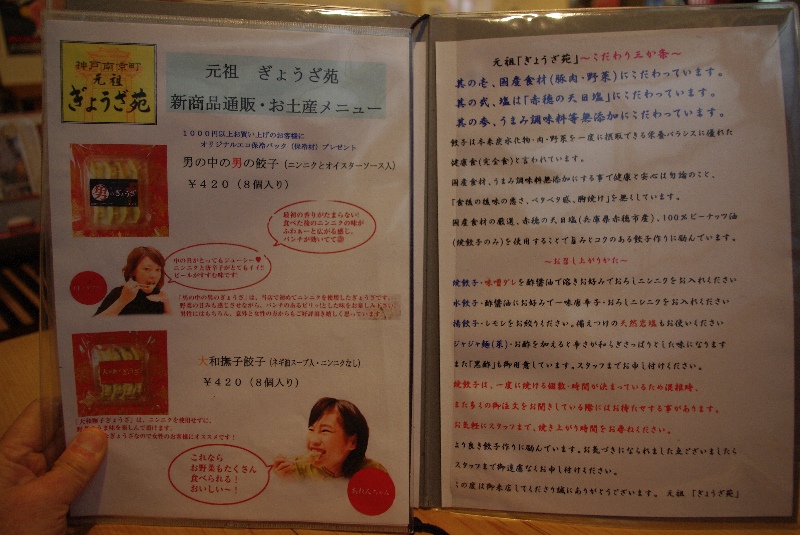 神戸南京町
元祖
ぎょうざ苑
元祖 ぎょうざ苑
新商品通販・お土産メニュー
1000円以上お買い上げのお客様に
オリジナルエコ保冷パック(保冷材)プレゼント
男の中の男の餃子(ニンニクとオイスターソース入)
¥420(8個入り)
最初の香りがたまらない!
食べた後のニンニクの味が
ふわぁーと広がる感じ。
パンチが効いてて
中の具がとってもジューシー♥
ニンニクと唐辛子がとてもイイ!
ビールがすすむ味です!
「男の中の男のぎょうざ」は、当店で初めてニンニクを使用したぎょうざです。
野菜の甘みも感じさせながら、パンチのあるピリッ!とした味をお楽しみ下さい。
男性にはもちろん、意外と女性の方からもご好評頂き嬉しく思っています。
大和撫子餃子(ネギ油スープ入・ニンニクなし)
¥420(8個入り)
「大和撫子ぎょうざ」は、ニンニクを使用せずに、
ぎょうざなので女性のお客様にオススメです!
これなら
お野菜もたくさん
食べられる!
おいしい~!
元祖「ぎょうざ苑」~こだわり三か条~
其の壱、国産食材(豚肉・野菜)にこだわっています。
其の弐、塩は「赤穂の天日塩」にこだわっています。
其の参、うまみ調味料等無添加にこだわっています。
餃子は本来炭水化物・肉・野菜を一度に摂取できる栄養バランスに優れた
健康食(完全食)と言われています。
国産食材、うまみ調味料無添加にする事で健康と安心は勿論のこと、
「食後の後味の悪さ、ベタベタ感、胸焼け」を無くしています。
国産食材の厳選、赤穂の天日塩(兵庫県赤穂市産)、100%ピーナッツ油
(焼餃子のみ)を使用することで旨みとコクのある餃子作りに励んでいます。
~お召し上がりかた~
焼餃子・味噌ダレを酢醤油で溶きお好みでおろしニンニクをお入れください
水餃子・酢醤油にお好みで一味唐辛子・おろしニンニクをお入れください
揚餃子・レモンをお絞りください。備えつけの天然岩塩もお使いください
ジャジャ麺(菜)・お酢を加えると辛さが和らぎさっぱりとした味になります
また「黒酢」も御用意しています。スタッフまでお申し付けください。
焼餃子は、一度に焼ける個数・時間が決まっているため混雑時、
また多くの御注文をお聞きしている際にはお待たせする事があります。
お気軽にスタッフまで、焼き上がり時間をお尋ねください。
より良き餃子作りに励んでいます。お気づきになられました点ございましたら
スタッフまで御遠慮なくお申し付けください。
この度は御来店してくださり誠にありがとうございます。 元祖 「ぎょうざ苑」